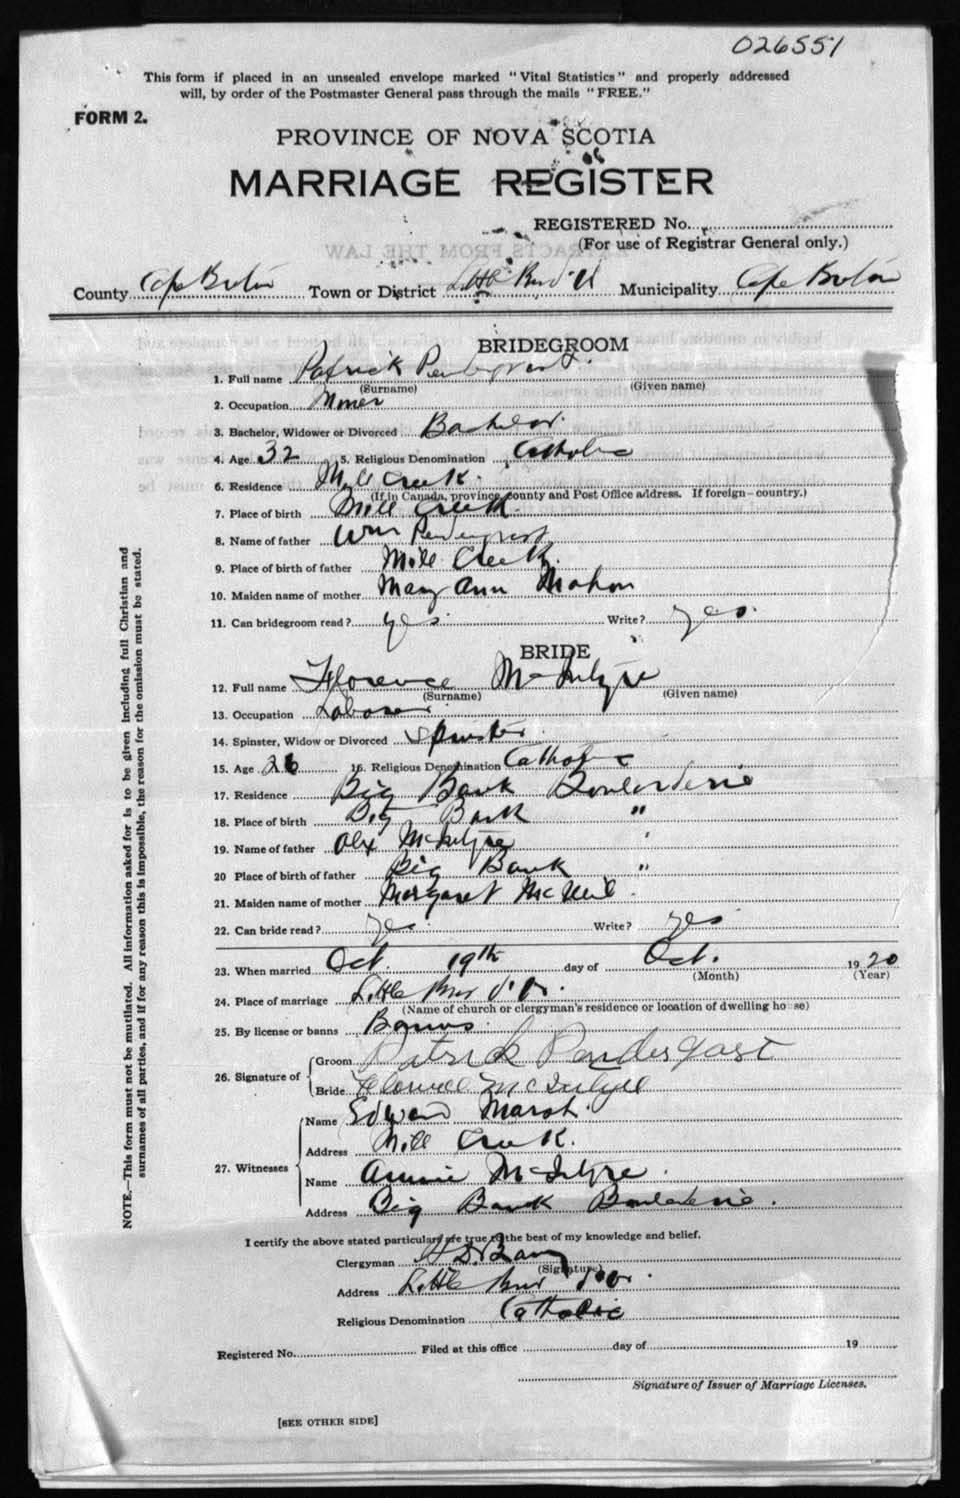 026551
This form if placed in an unsealed envelope marked "Vital Statistics" and properly addressed
will, by order of the Postmaster General pass through the mails "FREE."
FORM 2.
PROVINCE OF NOVA SCOTIA
MARRIAGE REGISTER
REGISTERED No.
EXTRACTS FROM THE LAW
(For use of Registrar General only.)
County Cape Breton Town or District Little Bras d'Or Municipality Cape Breton
BRIDEGROOM
1. Full name Patrick Pendergrast.
(Surname) (Given name)
2. Occupation Miner
3. Bachelor, Widower or Divorced Bachelor.
4. Age 32 5. Religious Denomination Catholic
6. Residence Mill Creek.
(If in Canada, province, county and Post Office address. If foreign—country.)
7. Place of birth Mill Creek.
8. Name of father Wm Pendergrast
9. Place of birth of father Mill Creek.
10. Maiden name of mother Mary Ann Mahon
11. Can bridegroom read? yes Write? yes.
BRIDE
12. Full name Florence McIntyre
(Surname) (Given name)
13. Occupation Laborer
14. Spinster, Widow or Divorced Spinster.
15. Age 26 16. Religious Denomination Catholic
17. Residence Big Bank Boularderie
18. Place of birth Big Bank "
19. Name of father Alex McIntyre
20 Place of birth of father Big Bank "
21. Maiden name of mother Margaret McNeil.
22. Can bride read? yes. Write? yes.
23. When married Oct. 19th day of Oct. 1920
(Month) (Year)
24. Place of marriage Little Bras d'Or.
(Name of church or clergyman's residence or location of dwelling house)
25. By license or banns Banns.
26. Signature of Groom Patrick Pendergast
Bride Florence McIntyre
27. Witnesses Name Edward Marsh.
Address Mill Creek.
Name Annie McIntyre.
Address Big Bank Boularderie.
I certify the above stated particulars are true to the best of my knowledge and belief.
Clergyman
(Signature)
Address Little Bras d'Or.
Religious Denomination Catholic
Registered No. Filed at this office day of 19
Signature of Issuer of Marriage Licenses.
[SEE OTHER SIDE]
NOTE.—This form must not be mutilated. All information asked for is to be given including full Christian and
surnames of all parties, and if for any reason this is impossible, the reason for the omission must be stated.